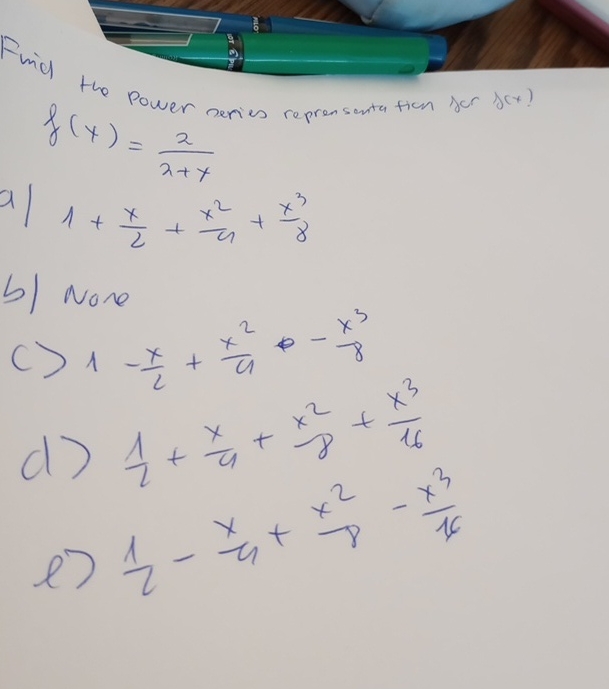 Find the Power series reprensentation for f(x)?
f(x) = 2/2+x
a) 1 + x/2 + x²/4 + x³/8
b) None
c) 1 - x/2 + x²/4 - x³/8
d) 1/2 + x/4 + x²/8 + x³/16
e) 1/2 - x/4 + x²/8 - x³/16